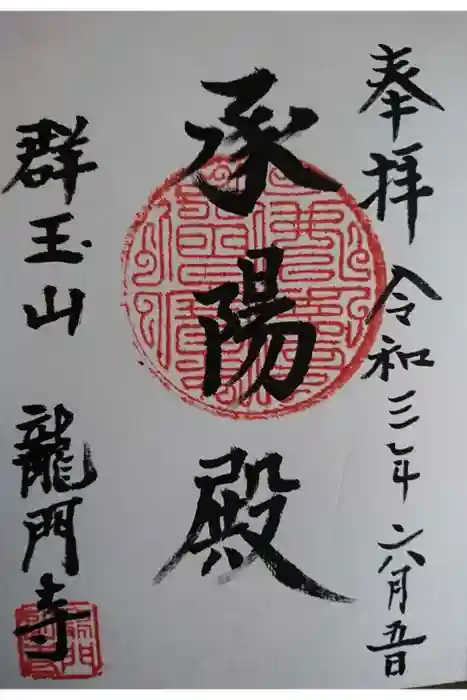 奉拝 令和三年六月五日
承陽殿
群玉山 龍門寺